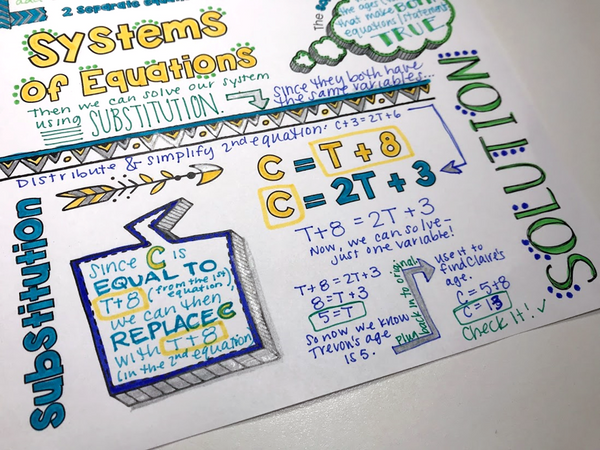 2 separate
Systems
of Equations
Then we can solve our system
using SUBSTITUTION.
The
the ages
that make BOTH
equations/statements
TRUE
since they both have
the same variables...
Distribute & simplify 2nd equation: C+3=2T+6
C = T + 8
C = 2T + 3
T+8 = 2T + 3
Now, we can solve-
just one variable!
T+8 = 2T+3
8 = T+3
5 = T
So now we know
Trevon's age
is 5.
Plug back in to original
use it to
find Claire's
age.
C = 5+8
C = 13
Check It! ✓
Substitution
since C is
EQUAL TO
T+8 (from the 1st
equation),
we can then
REPLACE C
with T+8
(in the 2nd equation)
SOLUTION